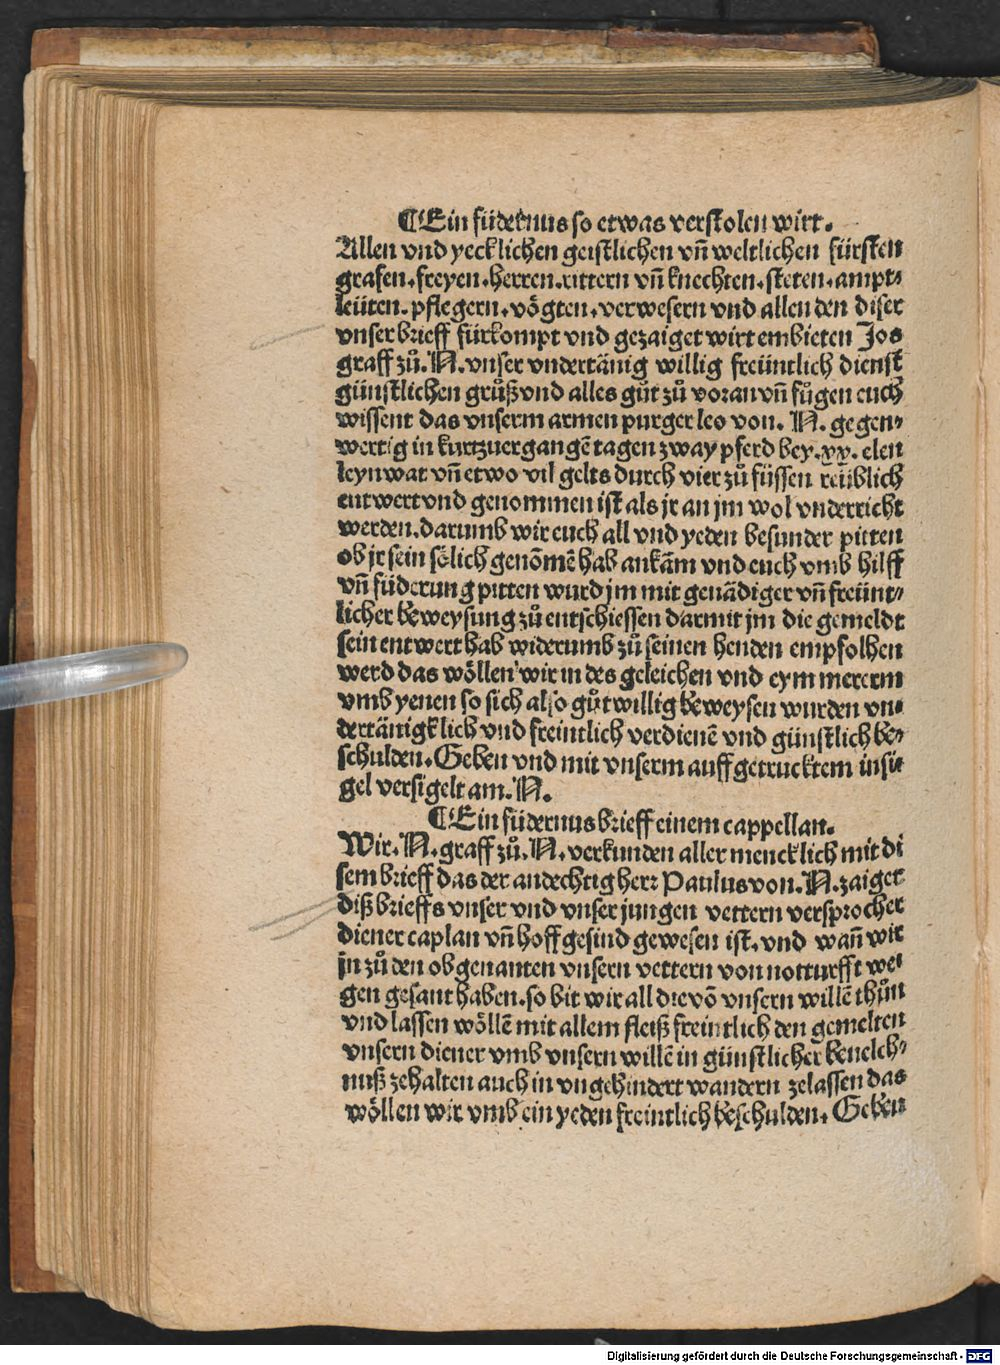 ¶Ein füdernus so etwas verstolen wirt.
Allen vnd yecklichen geistlichen vn̄ weltlichen fürsten
grafen.freyen.herren.rittern vn̄ knechten.steten.ampt⸗
leüten.pflegern.vögten.verwesern vnd allen den diser
vnser brieff fürkompt vnd gezaiget wirt embieten Jos
graff zů.N.vnser vndertänig willig freüntlich dienst
günstlichen grůß vnd alles gůt zů voran vn̄ fůgen euch
wissent das vnserm armen purger leo von.N.gegen⸗
wertig in kurtzuergangē tagen zway pferd bey.xx.elen
leynwat vn̄ etwo vil gelts durch vier zů füssen reüblich
entwert vnd genommen ist als jr an jm wol vnderricht
werden.darumb wir euch all vnd yeden besunder pitten
ob jr sein sölich genōmē hab ankām vnd euch vmb hilff
vn̄ füderung pitten wurd jm mit genädiger vn̄ freünt⸗
licher beweysung zů entschiessen darmit jm die gemeldt
sein entwert hab widerumb zů seinen henden empfolhen
werd das wöllen wir in des geleichen vnd eym mererm
vmb yenen so sich also gůtwillig beweysen wurden vn⸗
dertänigklich vnd freintlich verdienē vnd günstlich be⸗
schulden.Geben vnd mit vnserm auffgetrucktem insi⸗
gel versigelt am.N.
¶Ein füdernus brieff einem cappellan.
Wir.N.graff zů.N.verkunden aller mencklich mit di
sem brieff das der andechtig herr Paulus von.N.zaiger
diß brieffs vnser vnd vnser jungen vettern versprocher
diener caplan vn̄ hoffgesind gewesen ist.vnd wan̄ wir
jn zů den obgenanten vnsern vettern von notturfft we⸗
gen gesant haben.so bit wir all die vō vnsern willē thůn
vnd lassen wöllē mit allem fleiß freintlich den gemelten
vnsern diener vmb vnsern willē in günstlicher beuelch⸗
nuß zehalten auch in vngehindert wandern zelassen das
wöllen wir vmb ein yeden freintlich beschulden.Geben
Digitalisierung gefördert durch die Deutsche Forschungsgemeinschaft - DFG